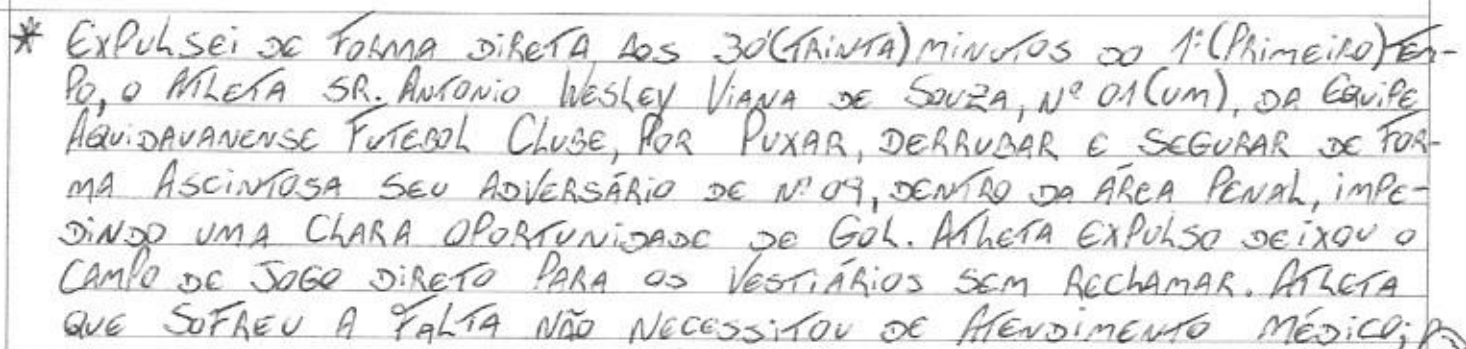 * EXPULSEI DE FORMA DIRETA AOS 30'(TRINTA) MINUTOS DO 1º (PRIMEIRO) TEM-
PO, O ATLETA SR. ANTONIO WESLEY VIANA DE SOUZA, Nº 01(UM), DA EQUIPE
AQUIDAVANENSE FUTEBOL CLUBE, POR PUXAR, DERRUBAR E SEGURAR DE FOR-
MA ASCINTOSA SEU ADVERSÁRIO DE Nº 09, DENTRO DA ÁREA PENAL, IMPE-
DINDO UMA CLARA OPORTUNIDADE DE GOL. ATLETA EXPULSO DEIXOU O
CAMPO DE JOGO DIRETO PARA OS VESTIÁRIOS SEM RECLAMAR. ATLETA
QUE SOFREU A FALTA NÃO NECESSITOU DE ATENDIMENTO MÉDICO;